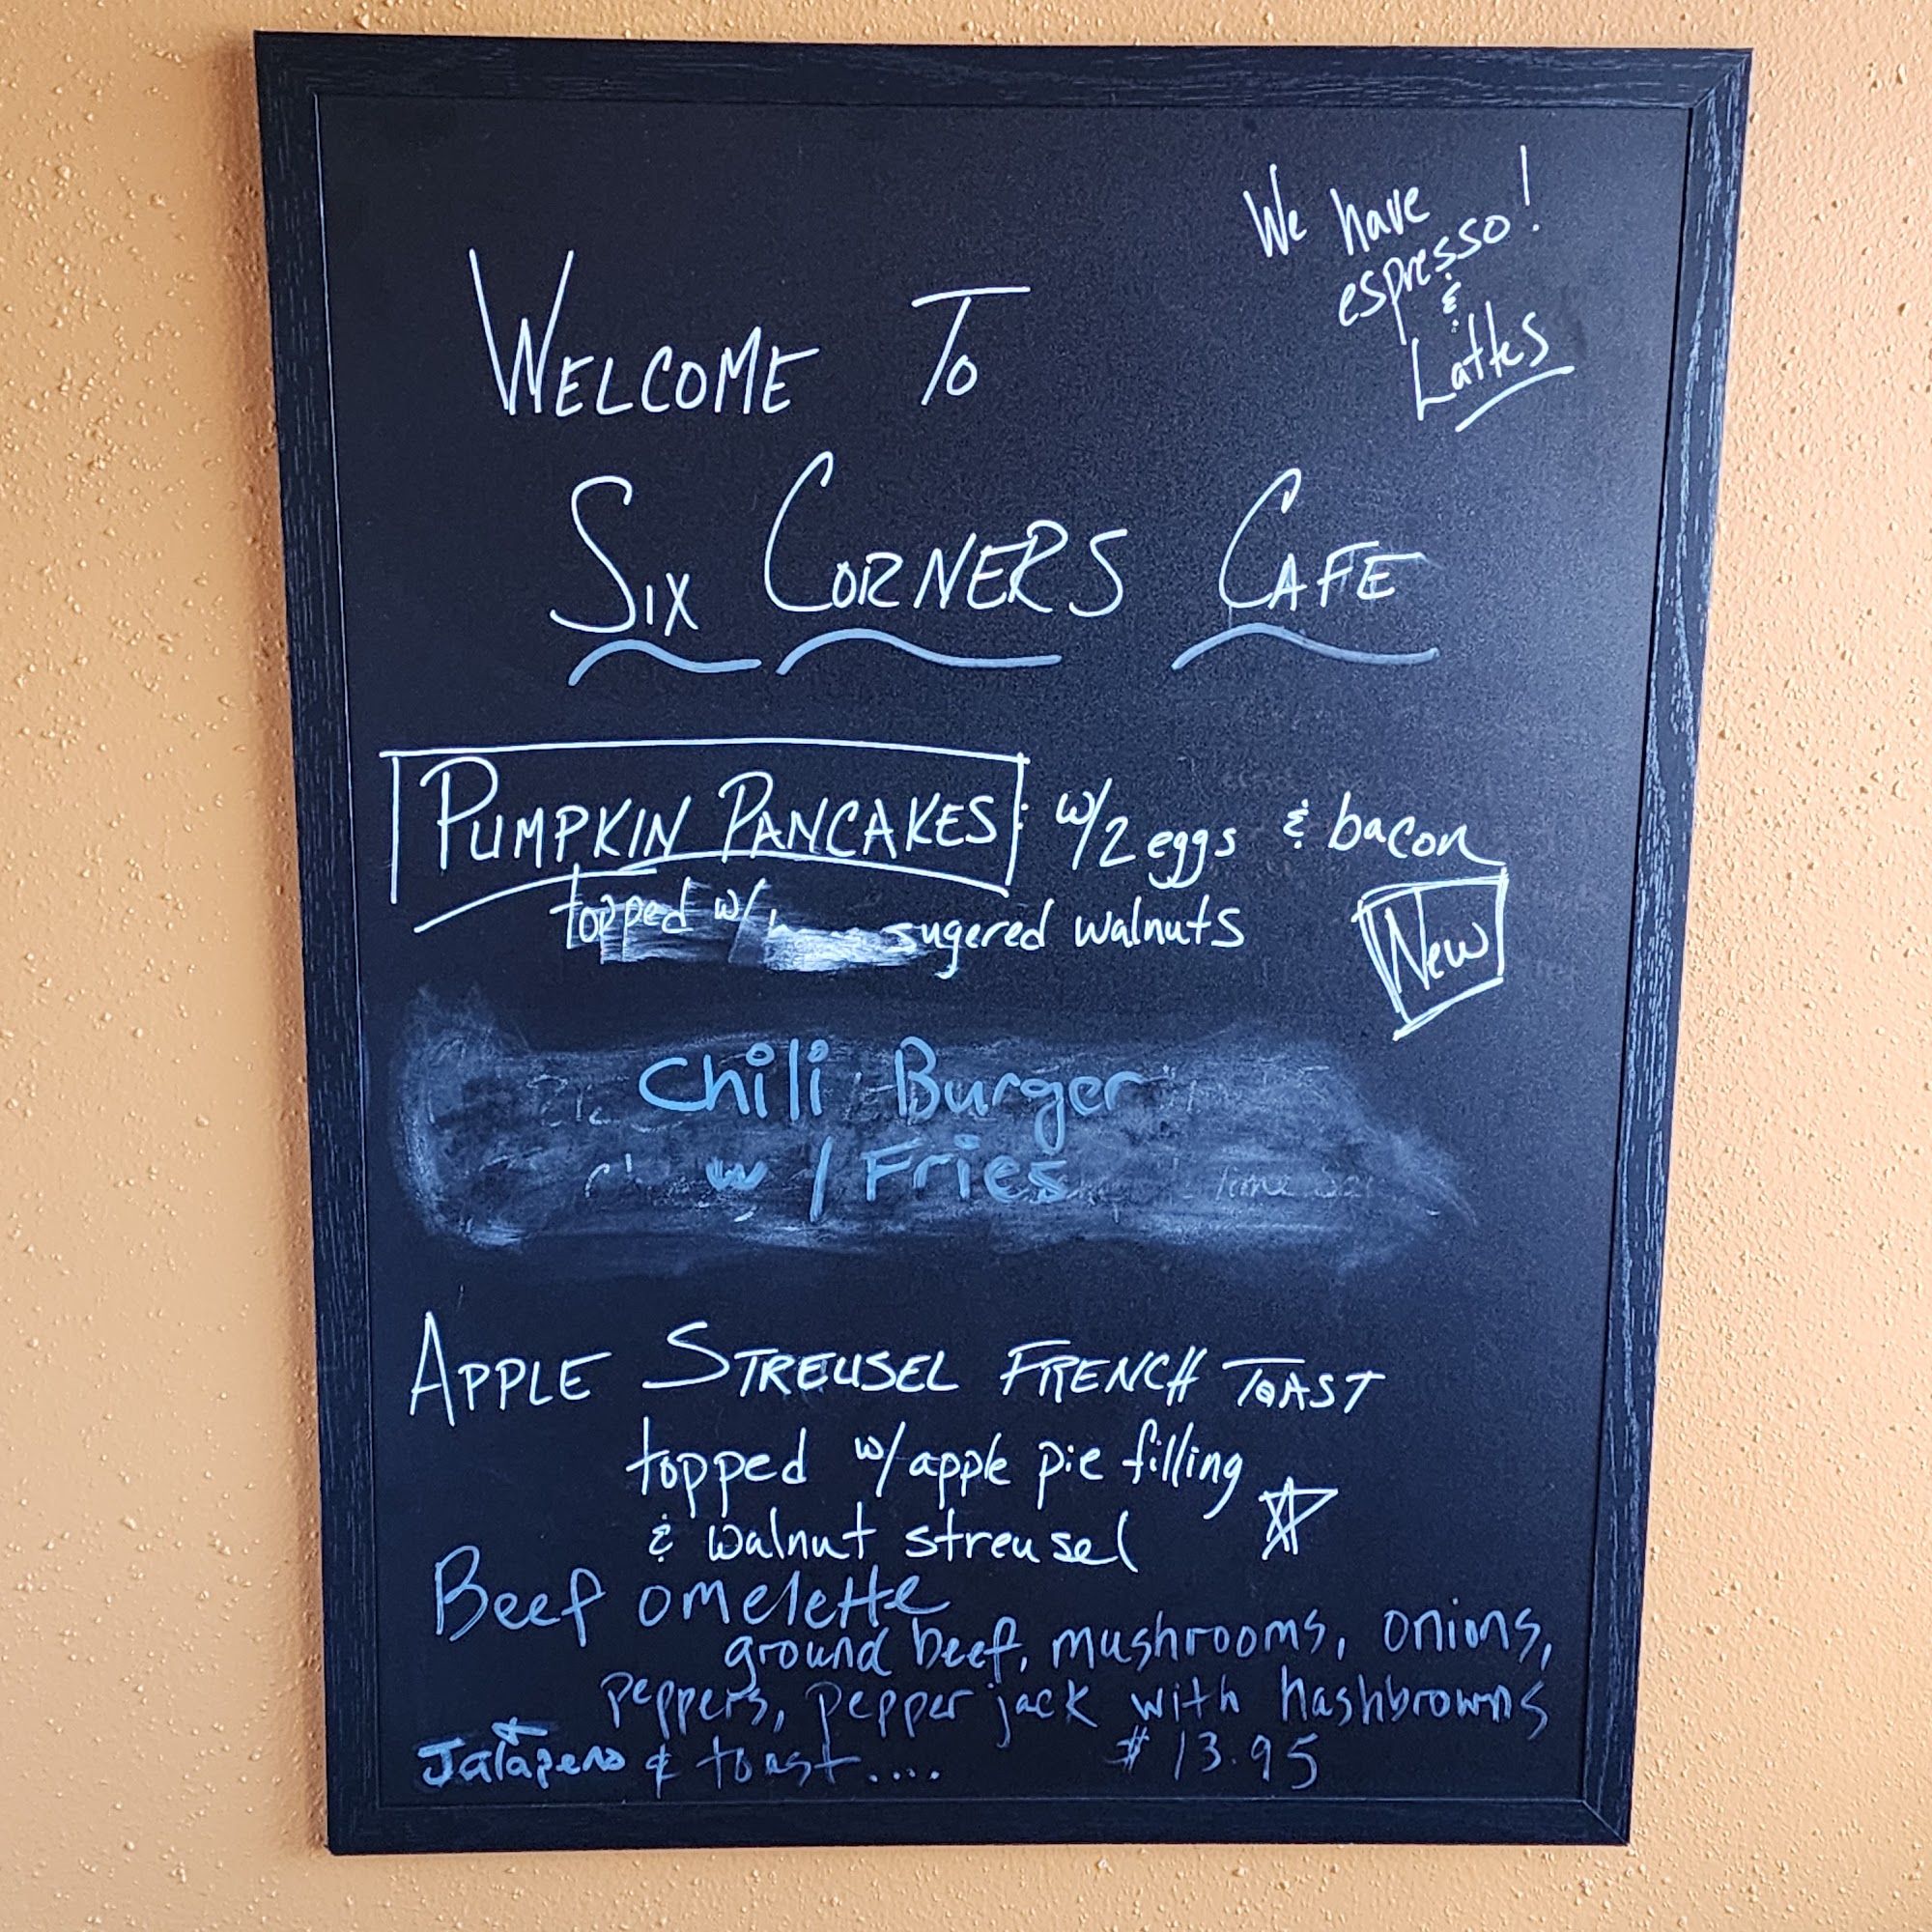 We have
espresso!
&
Lattes
WELCOME To
SIX CORNERS CAFE
PUMPKIN PANCAKES: w/2 eggs & bacon
topped w/ sugered walnuts
New
Chili Burger
w/Fries
APPLE STREUSEL FRENCH TOAST
topped w/apple pie filling
& walnut streusel
Beef omelette
ground beef, mushrooms, onions,
peppers, pepper jack with hashbrowns
Jalapeno & toast.... $13.95